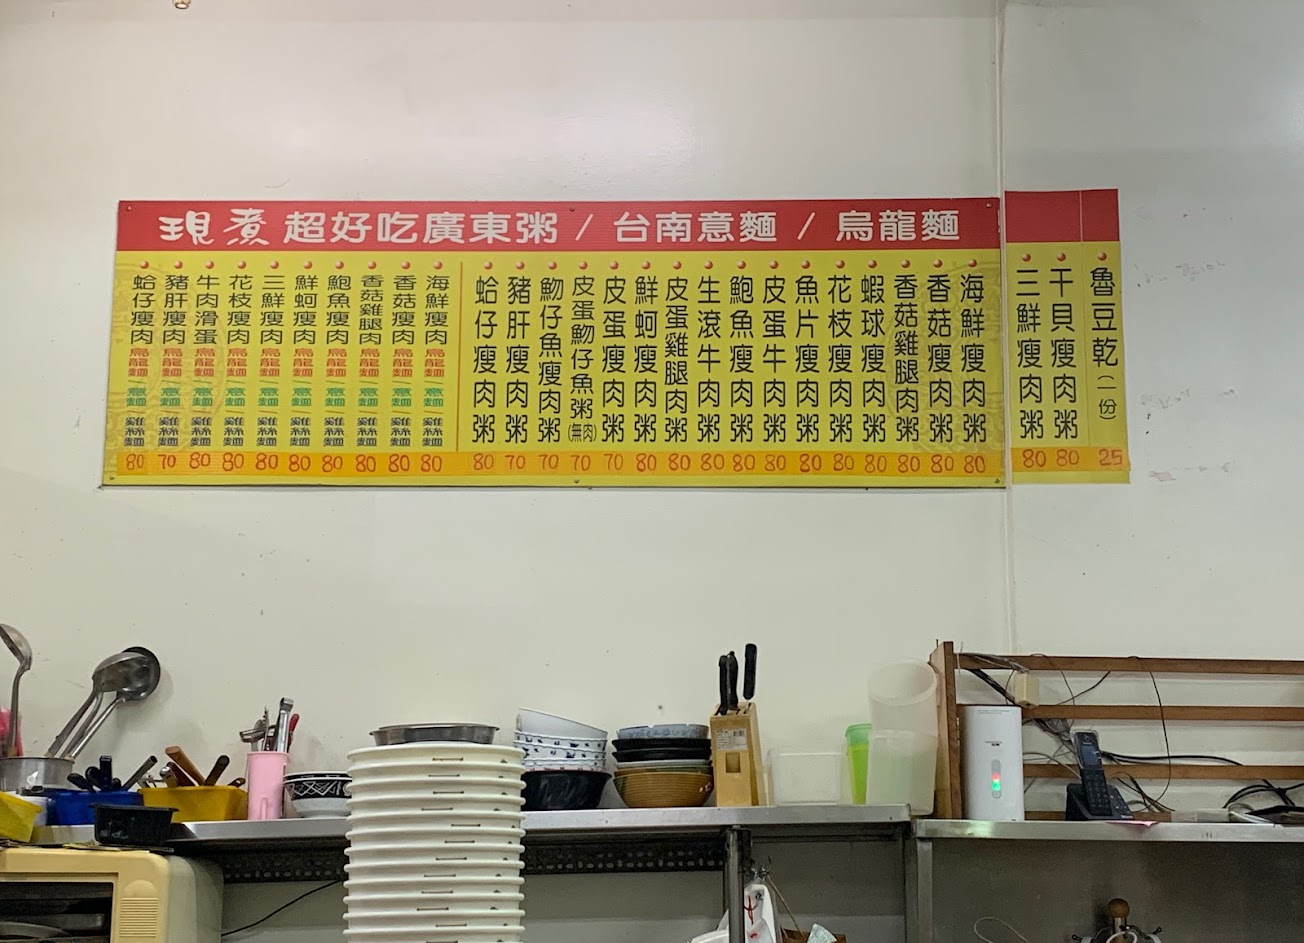 現煮 超好吃廣東粥 / 台南意麵 / 烏龍麵
蛤仔瘦肉烏龍麵/意麵/雞絲麵 80
豬肝瘦肉烏龍麵/意麵/雞絲麵 70
牛肉滑蛋烏龍麵/意麵/雞絲麵 80
花枝瘦肉烏龍麵/意麵/雞絲麵 80
三鮮瘦肉烏龍麵/意麵/雞絲麵 80
鮮蚵瘦肉烏龍麵/意麵/雞絲麵 80
鮑魚瘦肉烏龍麵/意麵/雞絲麵 80
香菇雞腿肉烏龍麵/意麵/雞絲麵 80
香菇瘦肉烏龍麵/意麵/雞絲麵 80
海鮮瘦肉烏龍麵/意麵/雞絲麵 80
蛤仔瘦肉粥 80
豬肝瘦肉粥 70
魩仔魚瘦肉粥 70
皮蛋魩仔魚粥(無肉) 70
皮蛋瘦肉粥 70
鮮蚵瘦肉粥 80
皮蛋雞腿肉粥 80
生滾牛肉粥 80
鮑魚瘦肉粥 80
皮蛋牛肉粥 80
魚片瘦肉粥 80
花枝瘦肉粥 80
蝦球瘦肉粥 80
香菇雞腿肉粥 80
香菇瘦肉粥 80
海鮮瘦肉粥 80
三鮮瘦肉粥 80
干貝瘦肉粥 80
魯豆乾(一份) 25